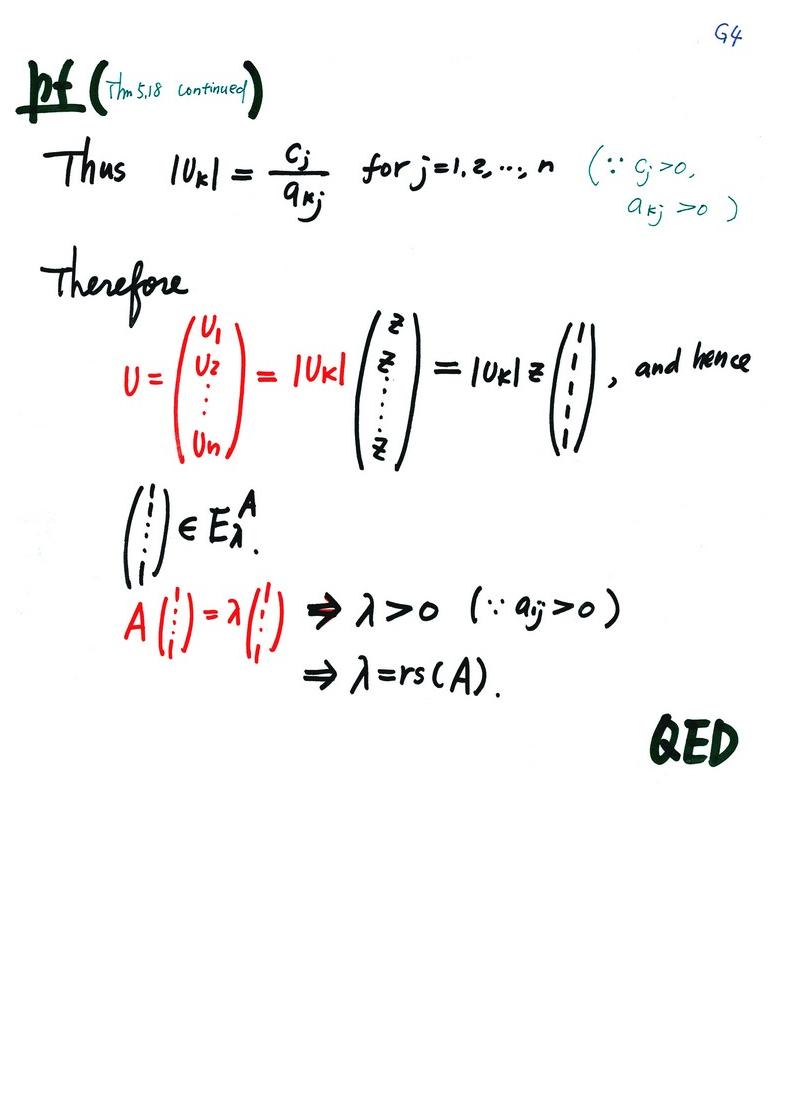 G4
pf (Thm 5.18 continued)
Thus |U_K| = c_j / a_{Kj} for j=1, 2, ..., n (∵ c_j >0,
a_{Kj} >0 )
Therefore
U = (U_1 U_2 ⋮ U_n) = |U_K| (z z ⋮ z) = |U_K| z (1 1 1 1 1), and hence
(1 1 ⋮ 1) ∈ E_λ^A.
A (1 ⋮ 1) = λ (1 ⋮ 1) ⇒ λ > 0 (∵ a_{ij} > 0 )
⇒ λ = rs(A).
QED